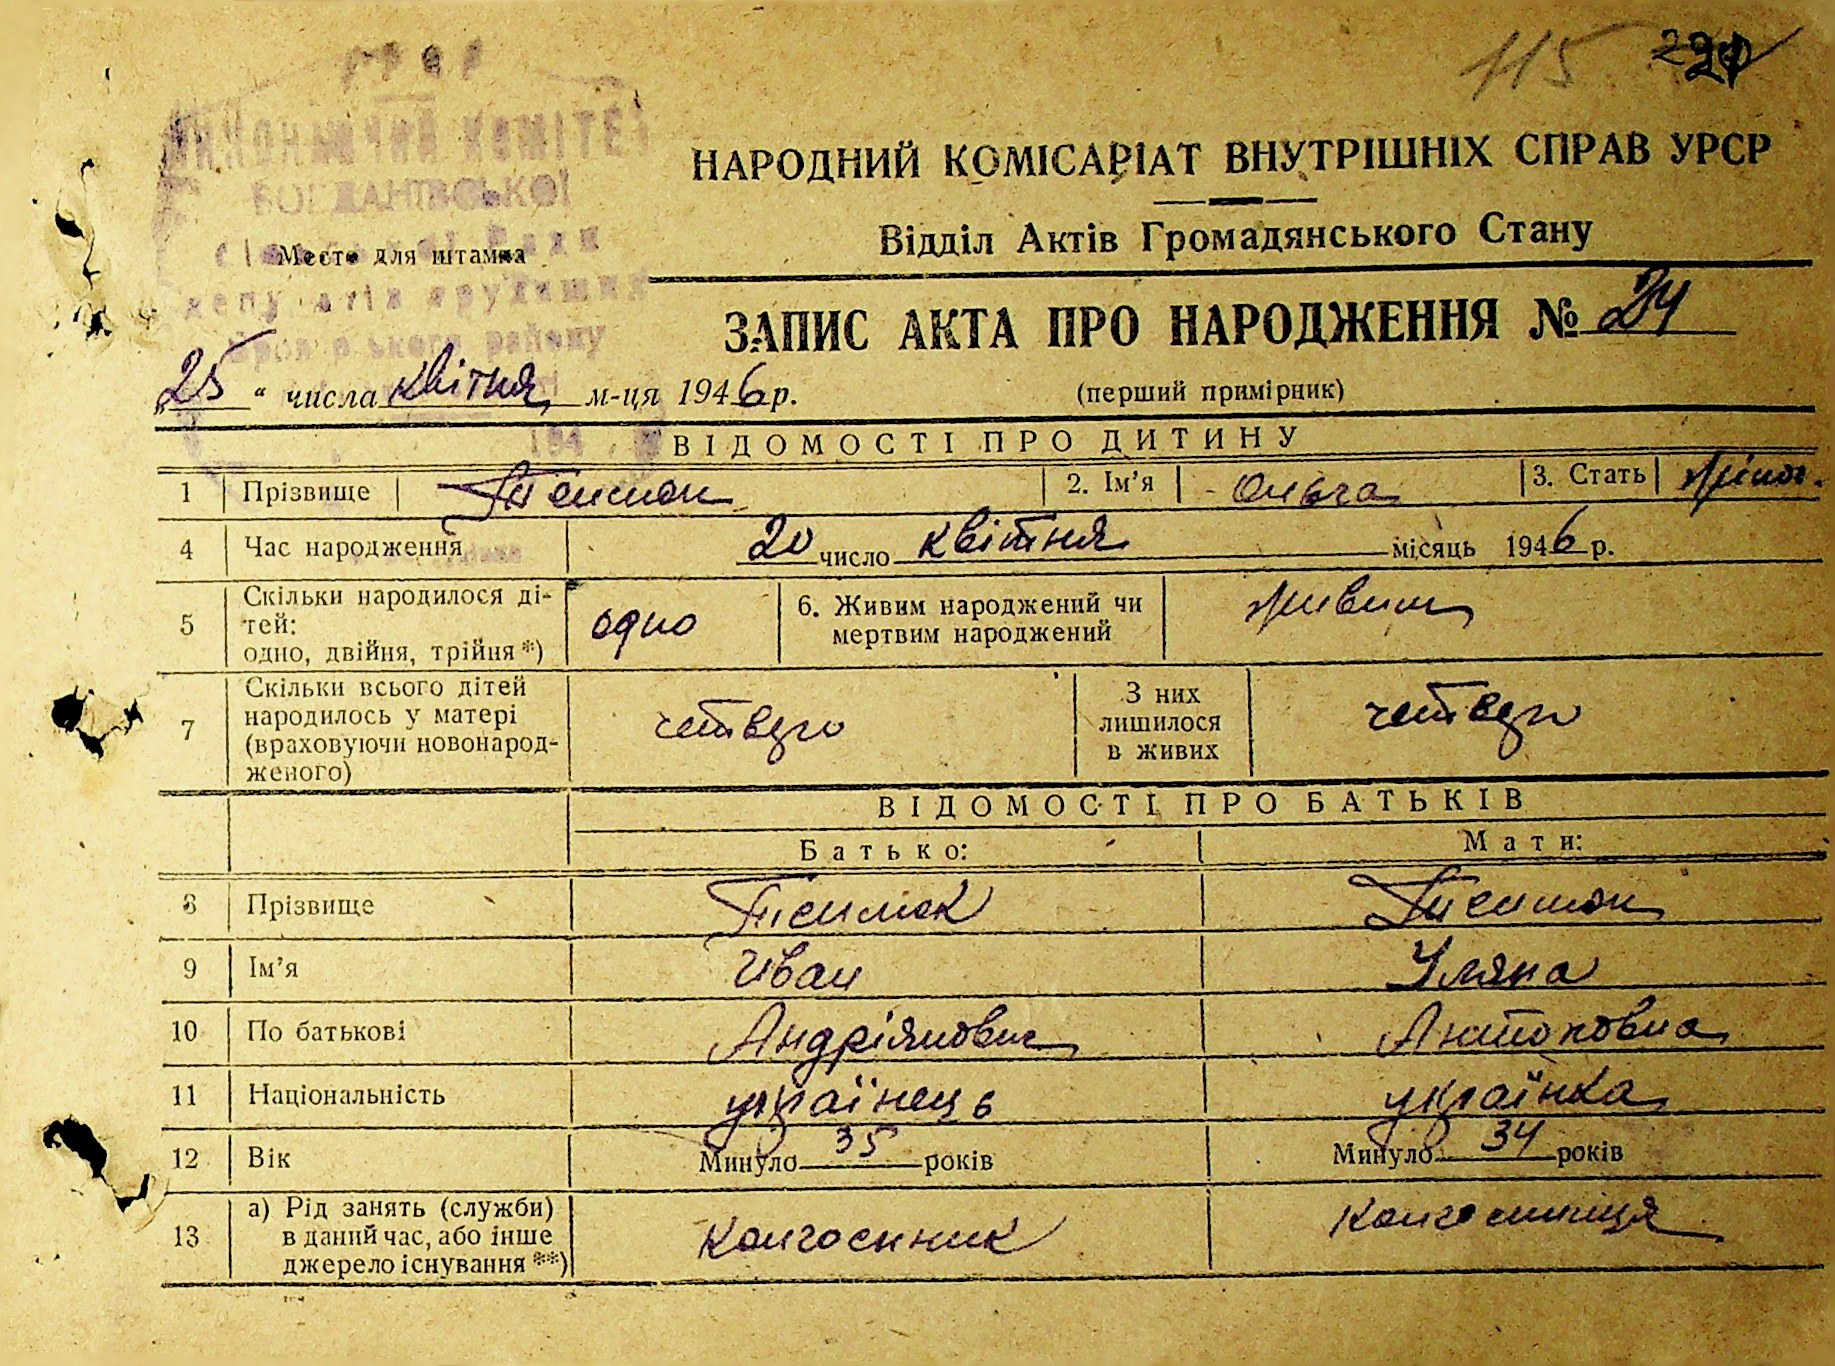 115
УРСР
ВИКОНАВЧИЙ КОМІТЕТ
БОГДАНІВСЬКОЇ
сільської Ради
депутатів трудящих
району
194
Место для штампа
НАРОДНИЙ КОМІСАРІАТ ВНУТРІШНІХ СПРАВ УРСР
Відділ Актів Громадянського Стану
ЗАПИС АКТА ПРО НАРОДЖЕННЯ № 24
„25“ числа квітня м-ця 1946 р. (перший примірник)
ВІДОМОСТІ ПРО ДИТИНУ
1 Прізвище 2. Ім’я Ольга 3. Стать жіноч.
4 Час народження 20 число квітня місяць 1946 р.
5 Скільки народилося ді-
тей:
одно, двійня, трійня *) одно 6. Живим народжений чи
мертвим народжений живим
7 Скільки всього дітей
народилось у матері
(враховуючи новонарод-
женого) четверо З них
лишилося
в живих четверо
ВІДОМОСТІ ПРО БАТЬКІВ
Батько: Мати:
8 Прізвище
9 Ім’я Иван Уляна
10 По батькові Андріянович Антоновна
11 Національність українець українка
12 Вік Минуло 35 років Минуло 34 років
13 а) Рід занять (служби)
в даний час, або інше
джерело існування **) колгоспник колгоспниця